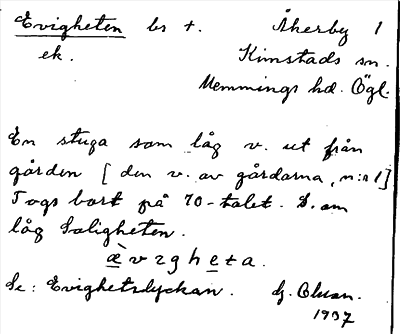 Evigheten bs +. Åkerby 1
ek. Kimstads sn.
Memmings hd. Ögl.
En stuga som låg v. ut från
gården [den v. av gårdarna, n:o 1]
Togs bort på 70-talet. S. om
låg Saligheten.
Se: Evighetslyckan. G.
1937